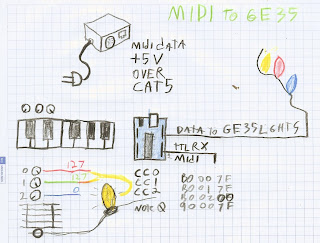 MIDI TO GE35
MIDI DATA
+5V
OVER
CAT5
DATA TO GE35LGHTS
TTL RX
MIDI
0 127 CC0 B0 00 7F
1 127 CC1 B0 01 7F
2 0 CC2 B0 02 00
NOTE Q 90 00 7F